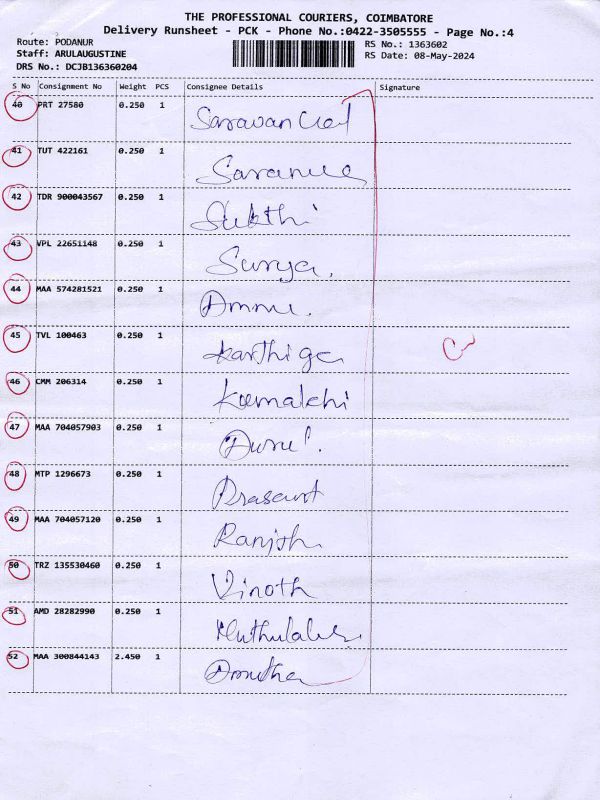 THE PROFESSIONAL COURIERS, COIMBATORE
Delivery Runsheet - PCK - Phone No.:0422-3505555 - Page No.:4
Route: PODANUR
RS No.: 1363602
Staff: ARULAUGUSTINE
RS Date: 08-May-2024
DRS No.: DCJB136360204
S No Consignment No Weight PCS Consignee Details Signature
40 PRT 27580 0.250 1
41 TUT 422161 0.250 1
42 TDR 900043567 0.250 1 Sukthi
43 VPL 22651148 0.250 1 Surya.
44 MAA 574281521 0.250 1
45 TVL 100463 0.250 1 Karthiga
46 CMM 206314 0.250 1 Kamatchi
47 MAA 704057903 0.250 1
48 MTP 1296673 0.250 1 Prasant
49 MAA 704057120 0.250 1 Ranjith
50 TRZ 135530460 0.250 1 Vinoth
51 AMD 28282990 0.250 1
52 MAA 300844143 2.450 1